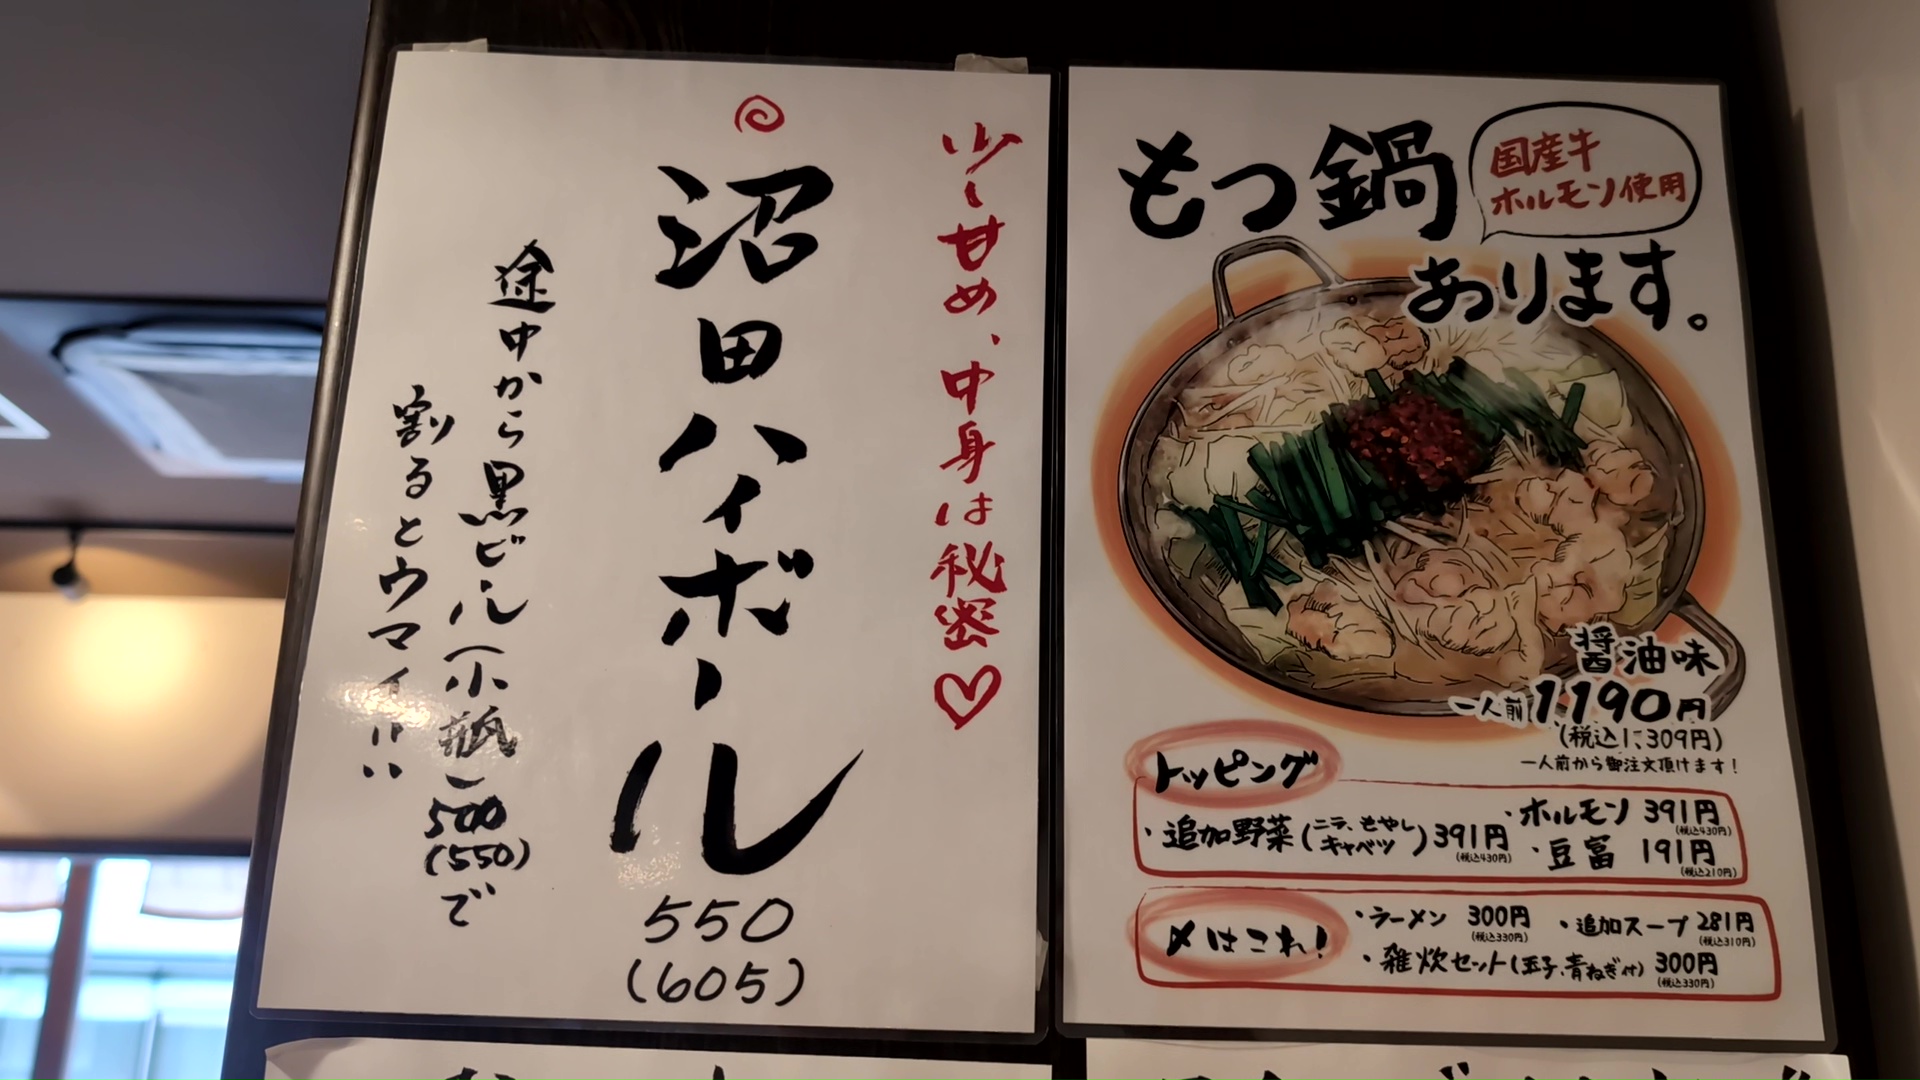 少し甘め、中身は秘密♡
沼田ハイボール
550
(605)
途中から黒ビール(小瓶)500
(550)で
割るとウマイ!!
もつ鍋
国産牛
ホルモン使用
あります。
醤油味
一人前1190円
(税込1,309円)
一人前から御注文頂けます!
トッピング
・追加野菜(ニラ、もやし キャベツ)391円
(税込430円)
・ホルモン 391円
(税込430円)
・豆富 191円
(税込210円)
〆はこれ!
・ラーメン 300円
(税込330円)
・追加スープ 281円
(税込310円)
・雑炊セット(玉子、青ねぎ付) 300円
(税込330円)